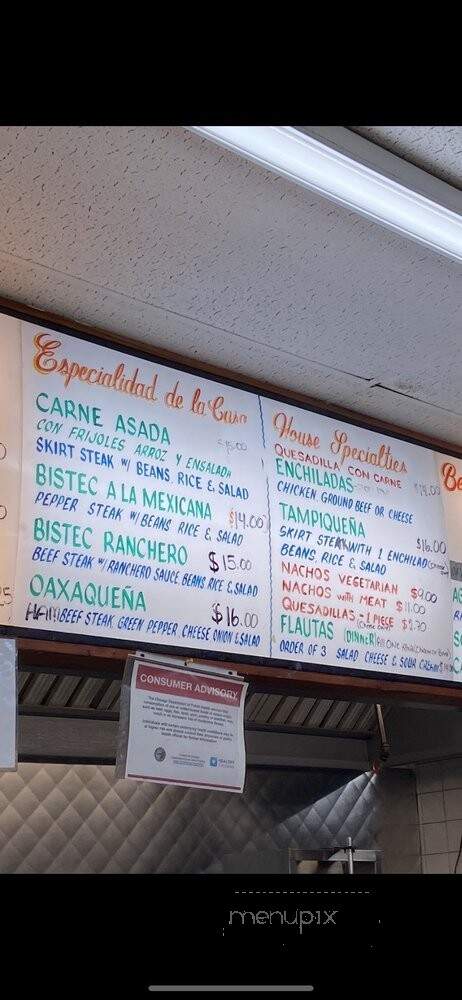 Especialidad de la Casa
CARNE ASADA
CON FRIJOLES ARROZ Y ENSALADA
SKIRT STEAK W/ BEANS, RICE & SALAD
BISTEC A LA MEXICANA
PEPPER STEAK W/ BEANS RICE & SALAD $14.00
BISTEC RANCHERO $15.00
BEEF STEAK W/ RANCHERO SAUCE BEANS RICE & SALAD
OAXAQUEÑA $16.00
HAM BEEF STEAK GREEN PEPPER CHEESE ONION & SALAD
House Specialties
QUESADILLA CON CARNE
ENCHILADAS
CHICKEN, GROUND BEEF OR CHEESE
TAMPIQUEÑA $16.00
SKIRT STEAK WITH 1 ENCHILADA
BEANS, RICE & SALAD
NACHOS VEGETARIAN $9.00
NACHOS WITH MEAT $11.00
QUESADILLAS - 1 PIECE
FLAUTAS (DINNER)
ORDER OF 3 SALAD CHEESE & SOUR CREAM
CONSUMER ADVISORY
menupix